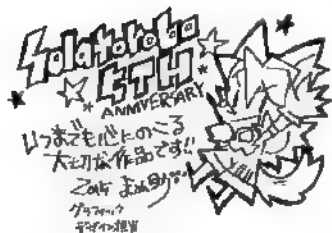 Solatorobo
5TH
ANNIVERSARY
いつまでも心にのこる
大切な作品です!!
2015
グラフィック
デザイン担当